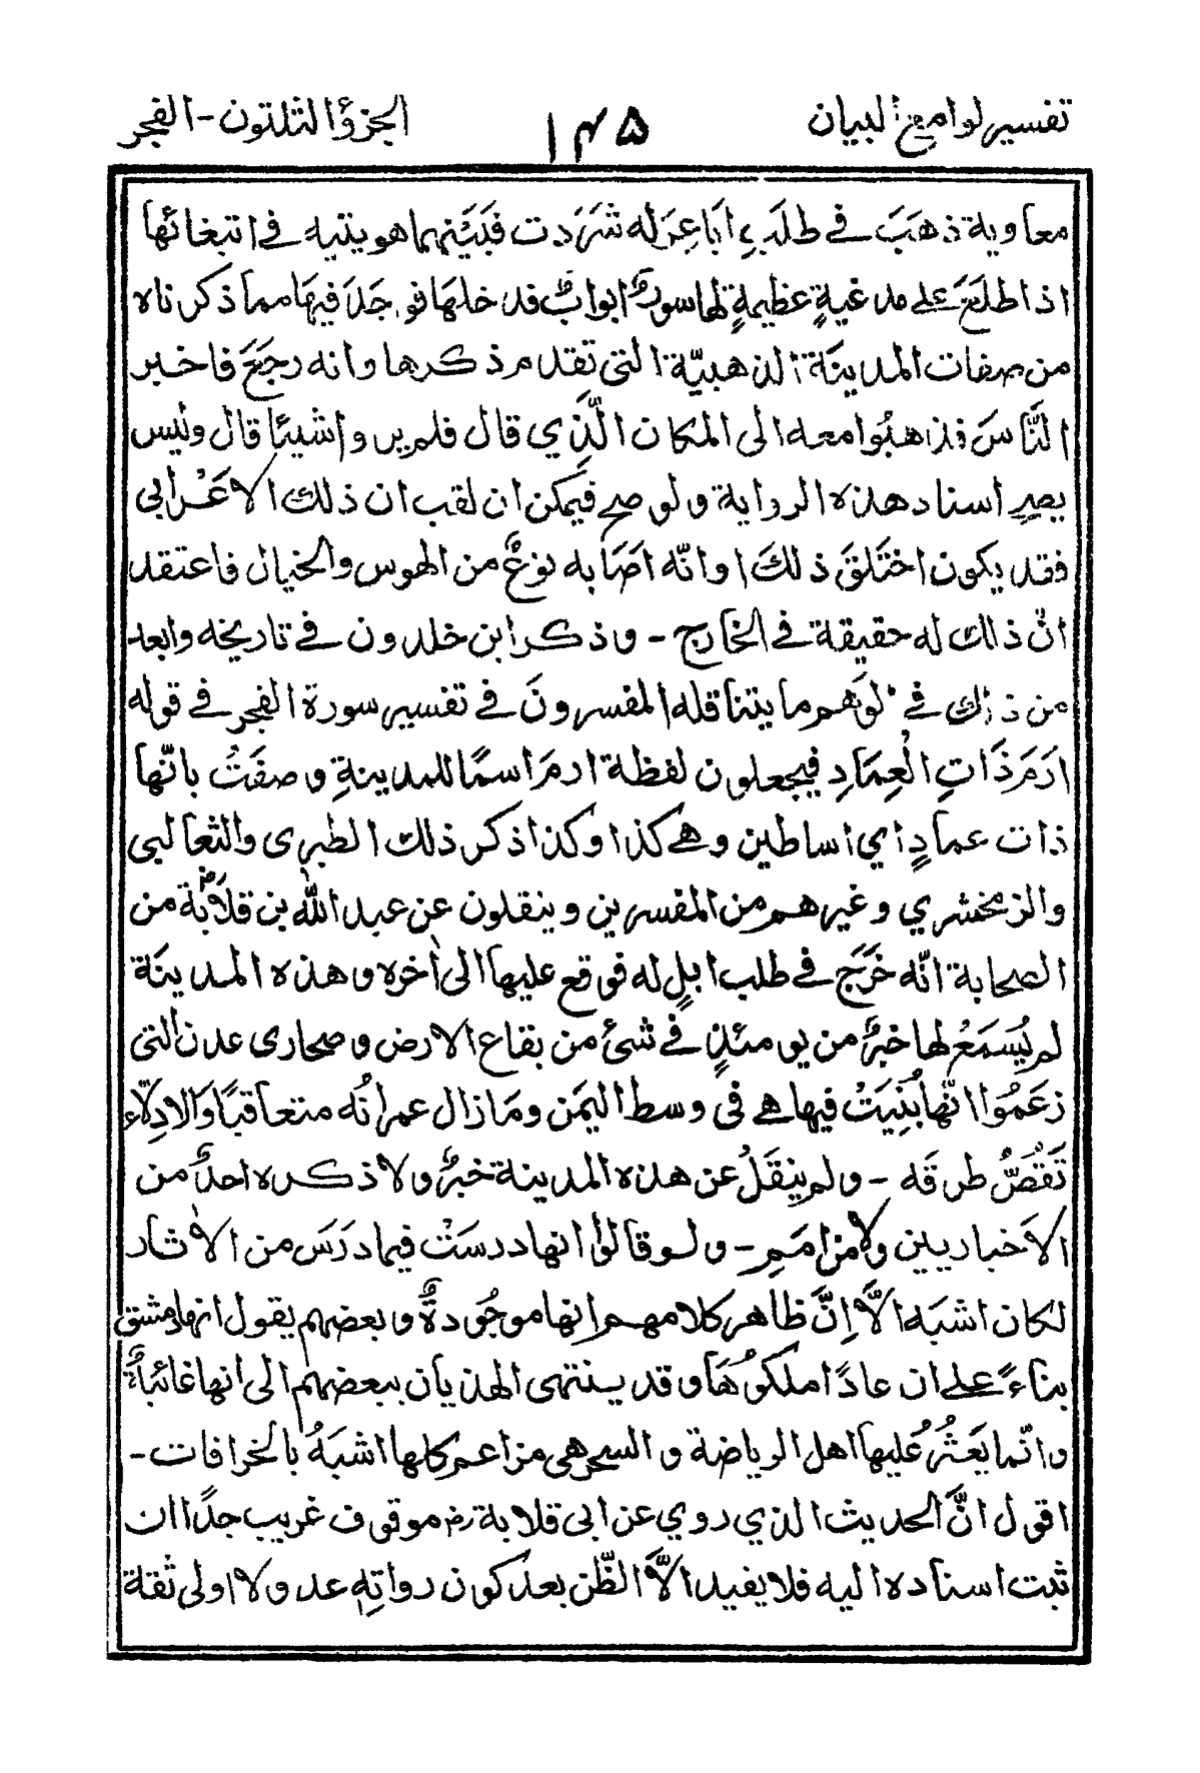 تفسير لوامع البيان ١٤٥ الجزؤ الثلثون - الفجر
معاوية ذهَبَ في طلَبِ اَبَاعِرَ له شَرَدت فَبَيْنما هو يتيه في ابتغائها
اذا طلَعَ على مدينةٍ عظيمةٍ لها سورٌ وابوابٌ فدخلهَا فوجَدَ فيهَا مما ذكرناه
من صفات المدينَة الذهبيّة التي تقدم ذكرها وانه رجَعَ فاخبر
النَّاسَ فذهبُوا معه الى المكان الَّذِي قال فلم يروا شيئًا قال وليس
يصح اسناد هذه الرواية ولو صح فيمكن ان لقب ان ذلك الاعْرابي
فقد يكون اختَلقَ ذلكَ اوانّه اصَابه نوعٌ من الهوس والخيال فاعتقد
انّ ذالك له حقيقة في الخارج - وذكر ابن خلدون في تاريخه وابعد
من ذلك في لوهم ما يتناقله المفسرونَ في تفسير سورة الفجر في قوله
ارَمَ ذَاتِ الْعِمَادِ فيجعلون لفظة ارمَ اسمًا للمدينةِ وصفَتُ بانّها
ذات عمادٍ اي اساطين وهى كذا وكذا ذكر ذلك الطبرى والثعالبى
والزمخشري وغيرهم من المفسرين وينقلون عن عبد الله بن قلَابَة من
الصحابة انّه خَرَج في طلب ابلٍ له فوقع عليها الى اٰخره وهذه المدينَة
لم يُسمَعُ لها خبرٌ من يومئذٍ في شئ من بقاع الارض وصحارى عدن التي
زعَمُوا انّها بُنِيَتْ فيها هي فى وسط اليمَن ومَا زال عمرانُه متعاقبًا وَالادِلّاء
تَقُصُّ طرقَه - ولم ينقَلُ عن هذه المدينة خبرٌ ولا ذكره احدٌ من
الاَخباريين ولا من امَمِ - ولو قالوا انها درسَتْ فيما درَسَ من الاٰثار
لكان اشبَه الَّا اِنَّ ظاهر كلامهم انها موجُودةٌ وبعضهم يقول انها دمشق
بناءً على ان عادًا ملكوُهَا وقد ينتهى الهذيان ببعضهم الى انها غائبةٌ
وانّما يَعثُرُ عليها اهل الرياضة والسحر هى مزاعم كلها اشبَهُ بالخرافات -
اقول انَّ الحديث الذي روي عن ابى قلابة رض موقوف غريب جدًا ان
ثبت اسناده اليه فلا يفيد الَّا الظّن بعد كون رواتِهِ عدولا اولى ثقة